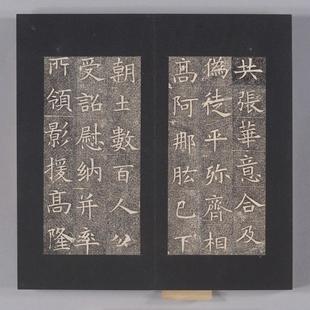 共張華意合及
偽徒平弥齊相
髙阿那肱已下
朝士數百人公
受詔慰納并率
所領影援髙隆